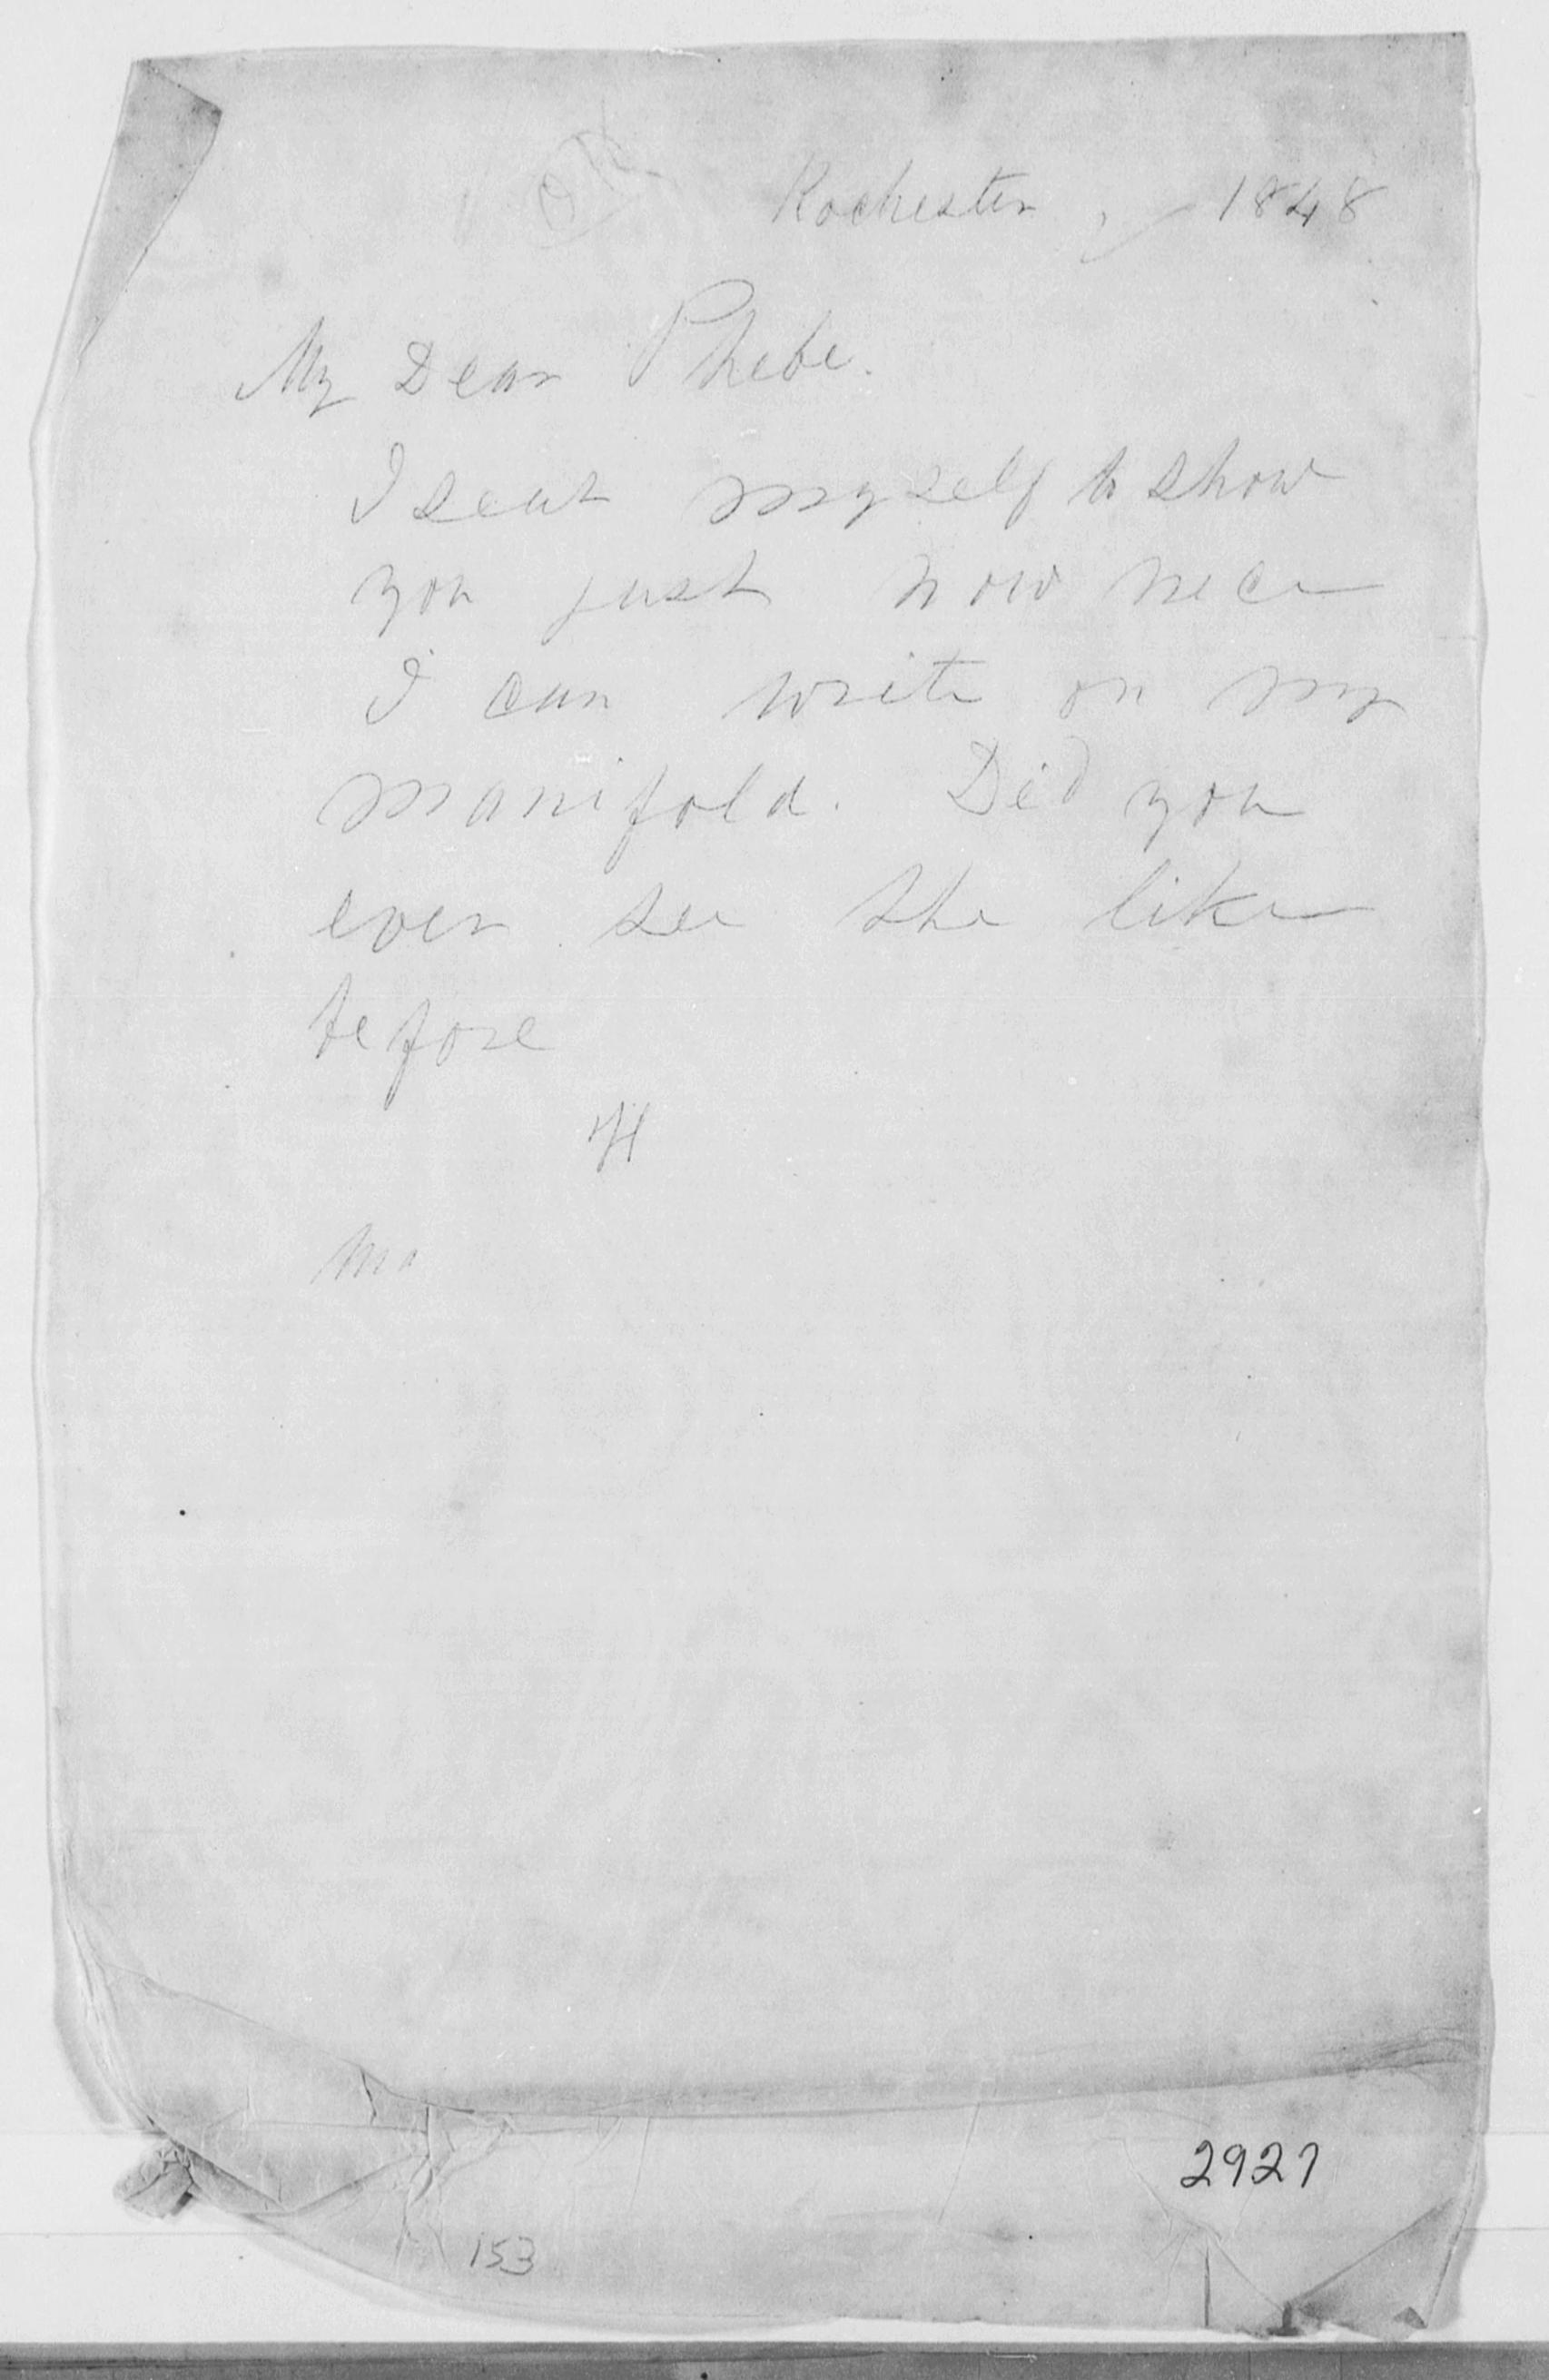 Rochester, 1848
My Dear Phebe.
I seat myself to show
you just how nice
I can write on my
manifold. Did you
ever see the like
before
H
Mo
2927
153